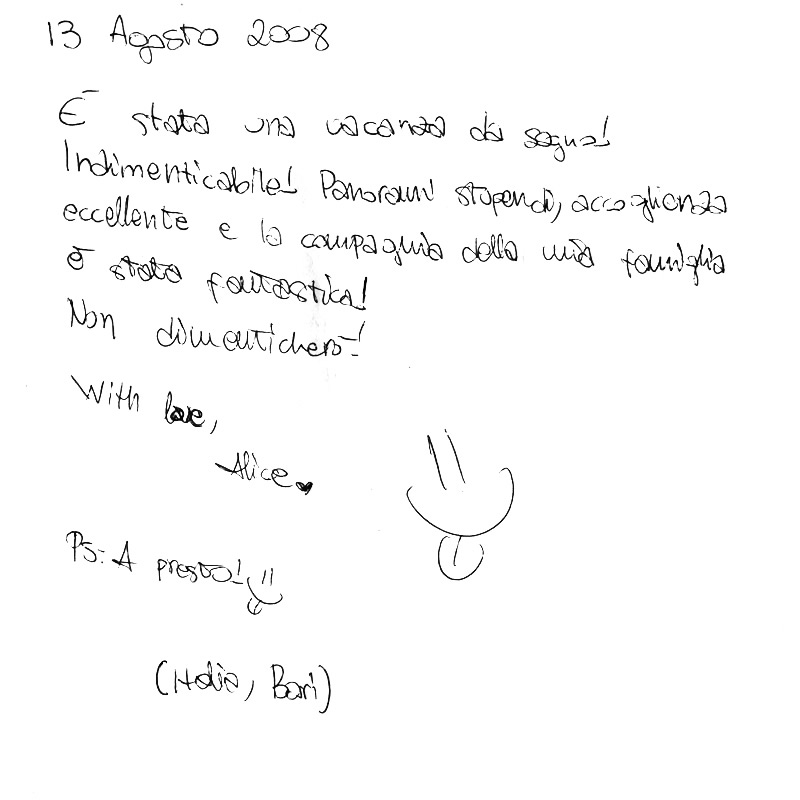 13 Agosto 2008
È stata una vacanza da sogno!
Indimenticabile! Panorami stupendi, accoglienza
eccellente e la compagnia della mia famiglia
è stata fantastica!
Non dimenticherò!
With love,
Alice
Ps: A presto!
(Italia, Bari)